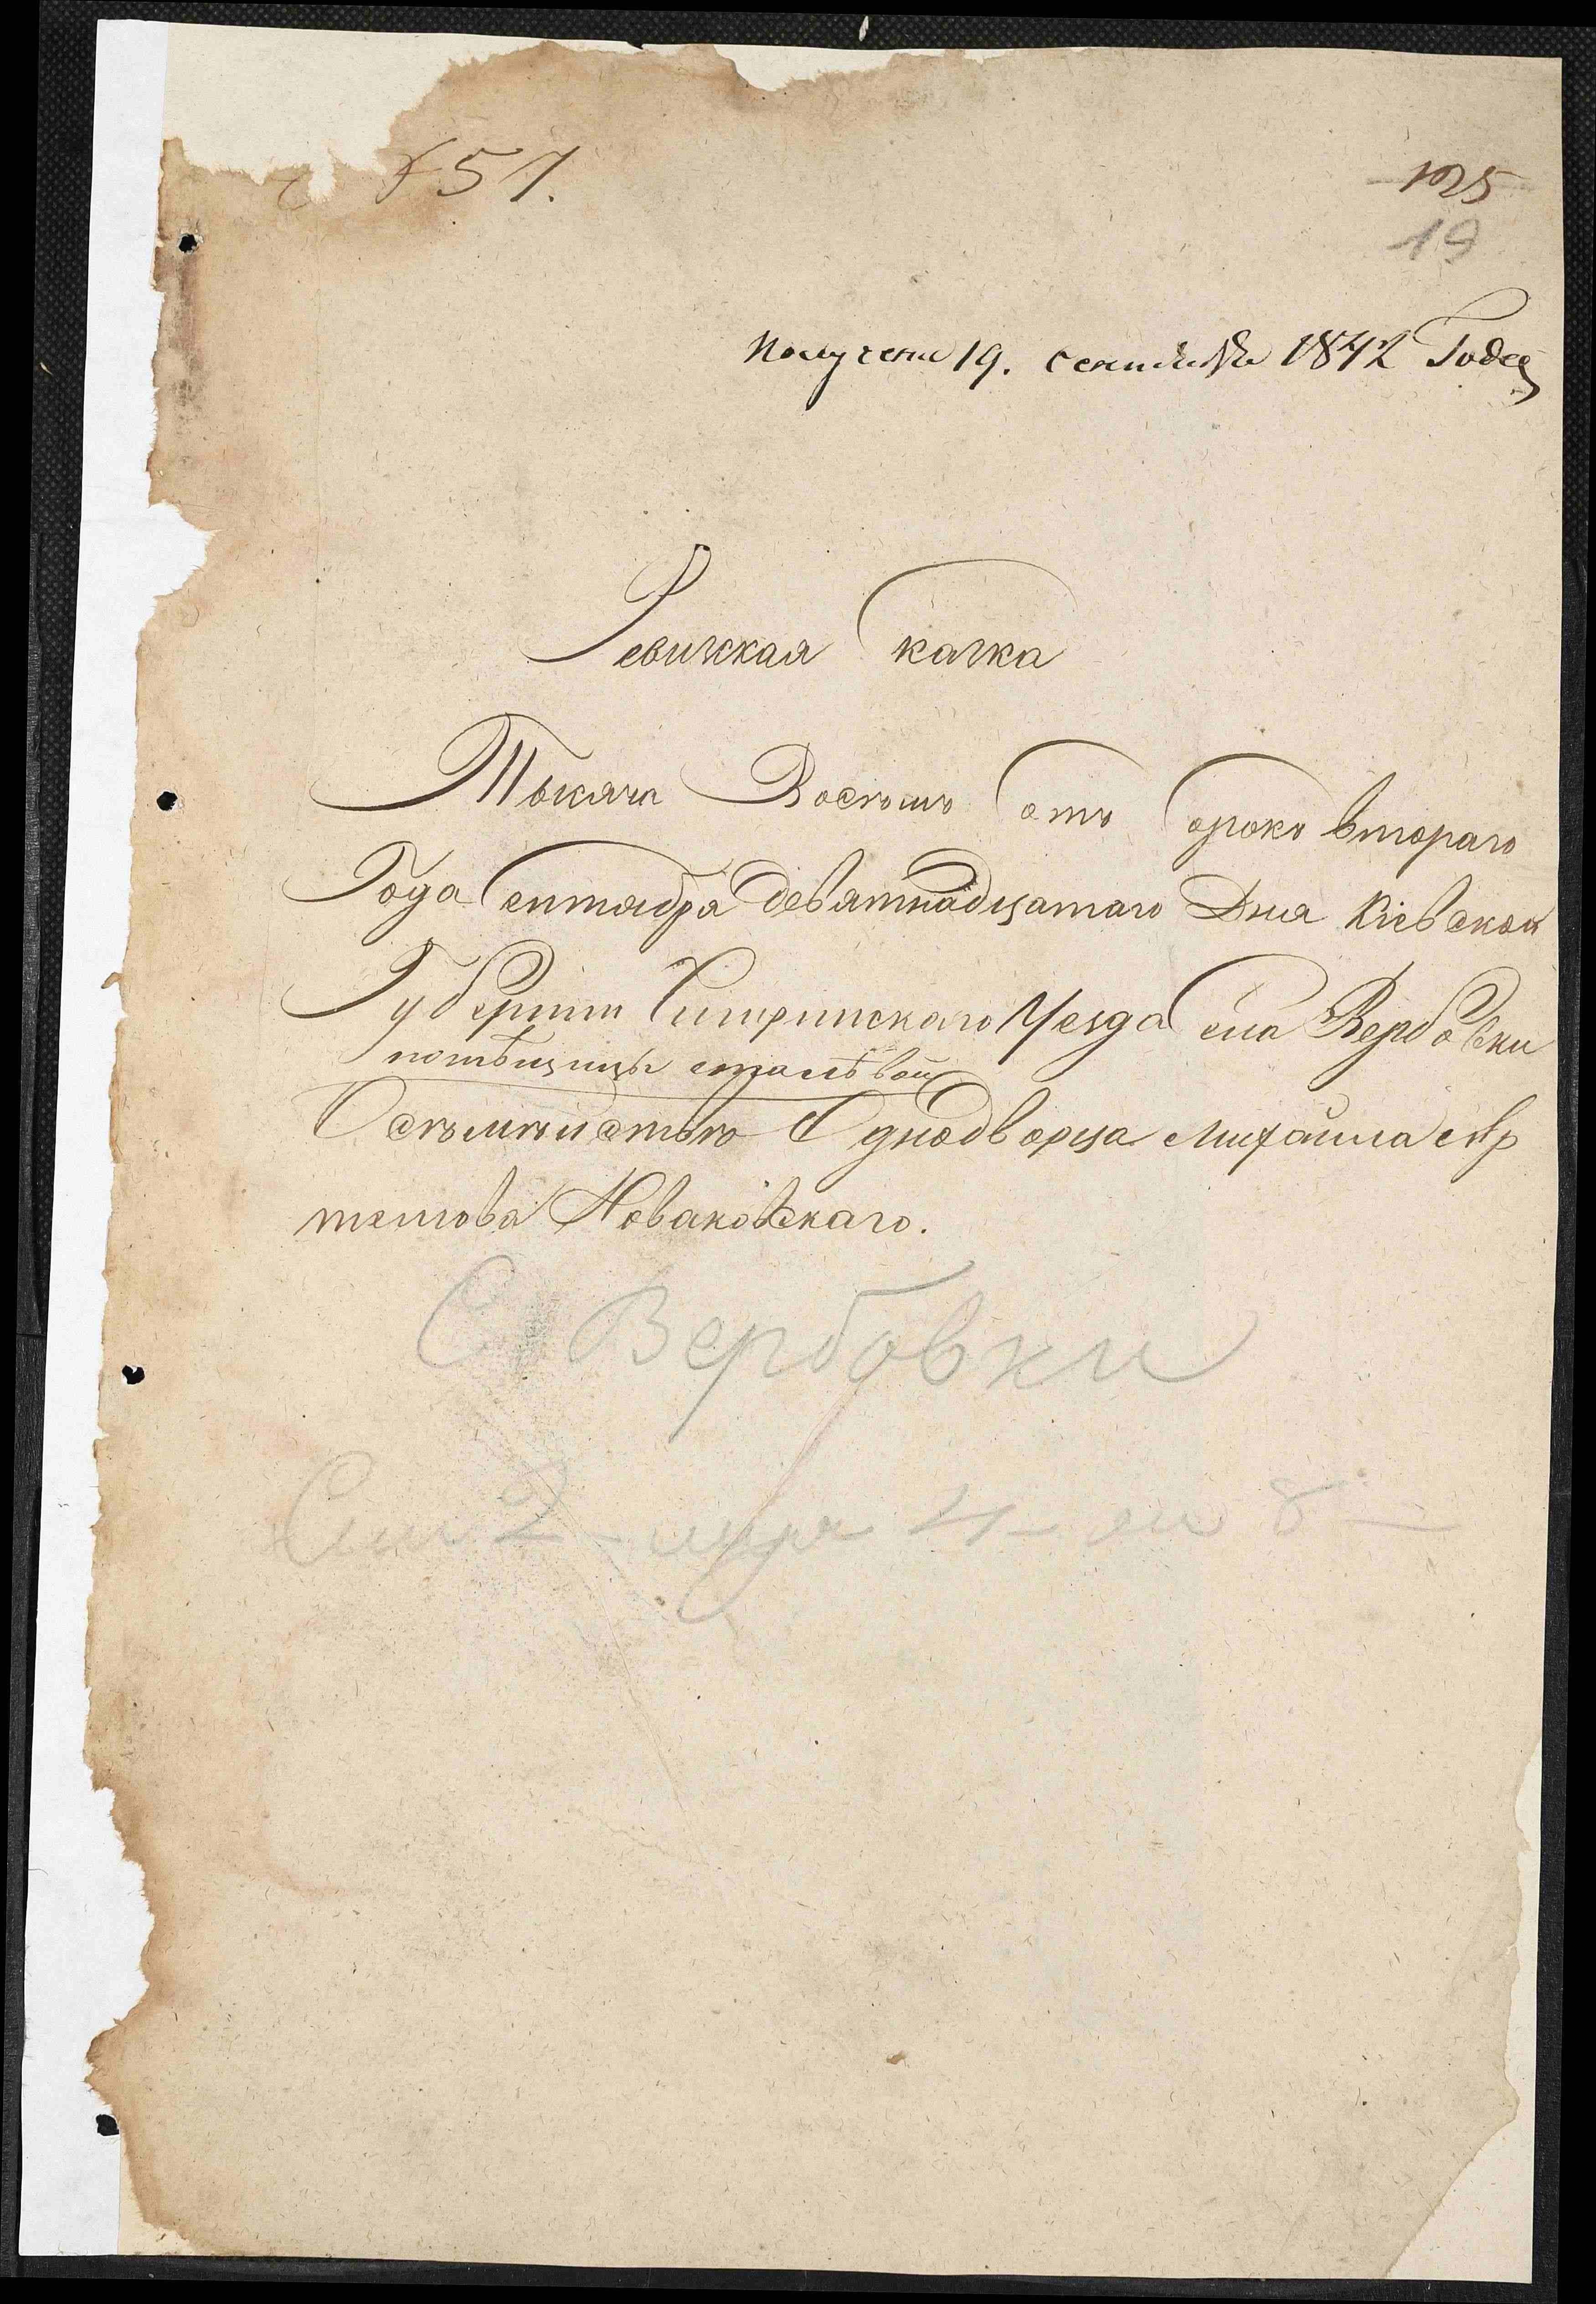 57.
125
19
получена 19. сентября 1842 Года
Ревижкая Каска
Тысяча Восемъ Отъ Сорокъ втораго
Года Сентября девятнадцатаго Дня Кіевской
Губерніи Чигиринскаго Уезда села Вербовки
помѣщицы
Семъйство Однодворца Михайла Ар
темова Новаковскаго.
С Вербовки
2 4 8